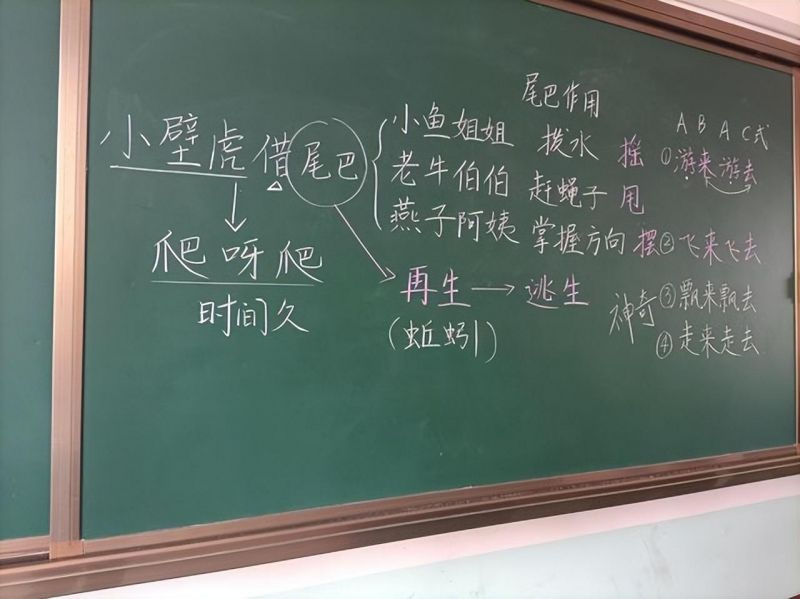 小壁虎借尾巴
爬呀爬
时间久
小鱼姐姐
老牛伯伯
燕子阿姨
尾巴作用
拨水 摇
赶蝇子 甩
掌握方向 摆
再生→逃生
(蚯蚓)
神奇
ABAC式
①游来游去
②飞来飞去
③飘来飘去
④走来走去